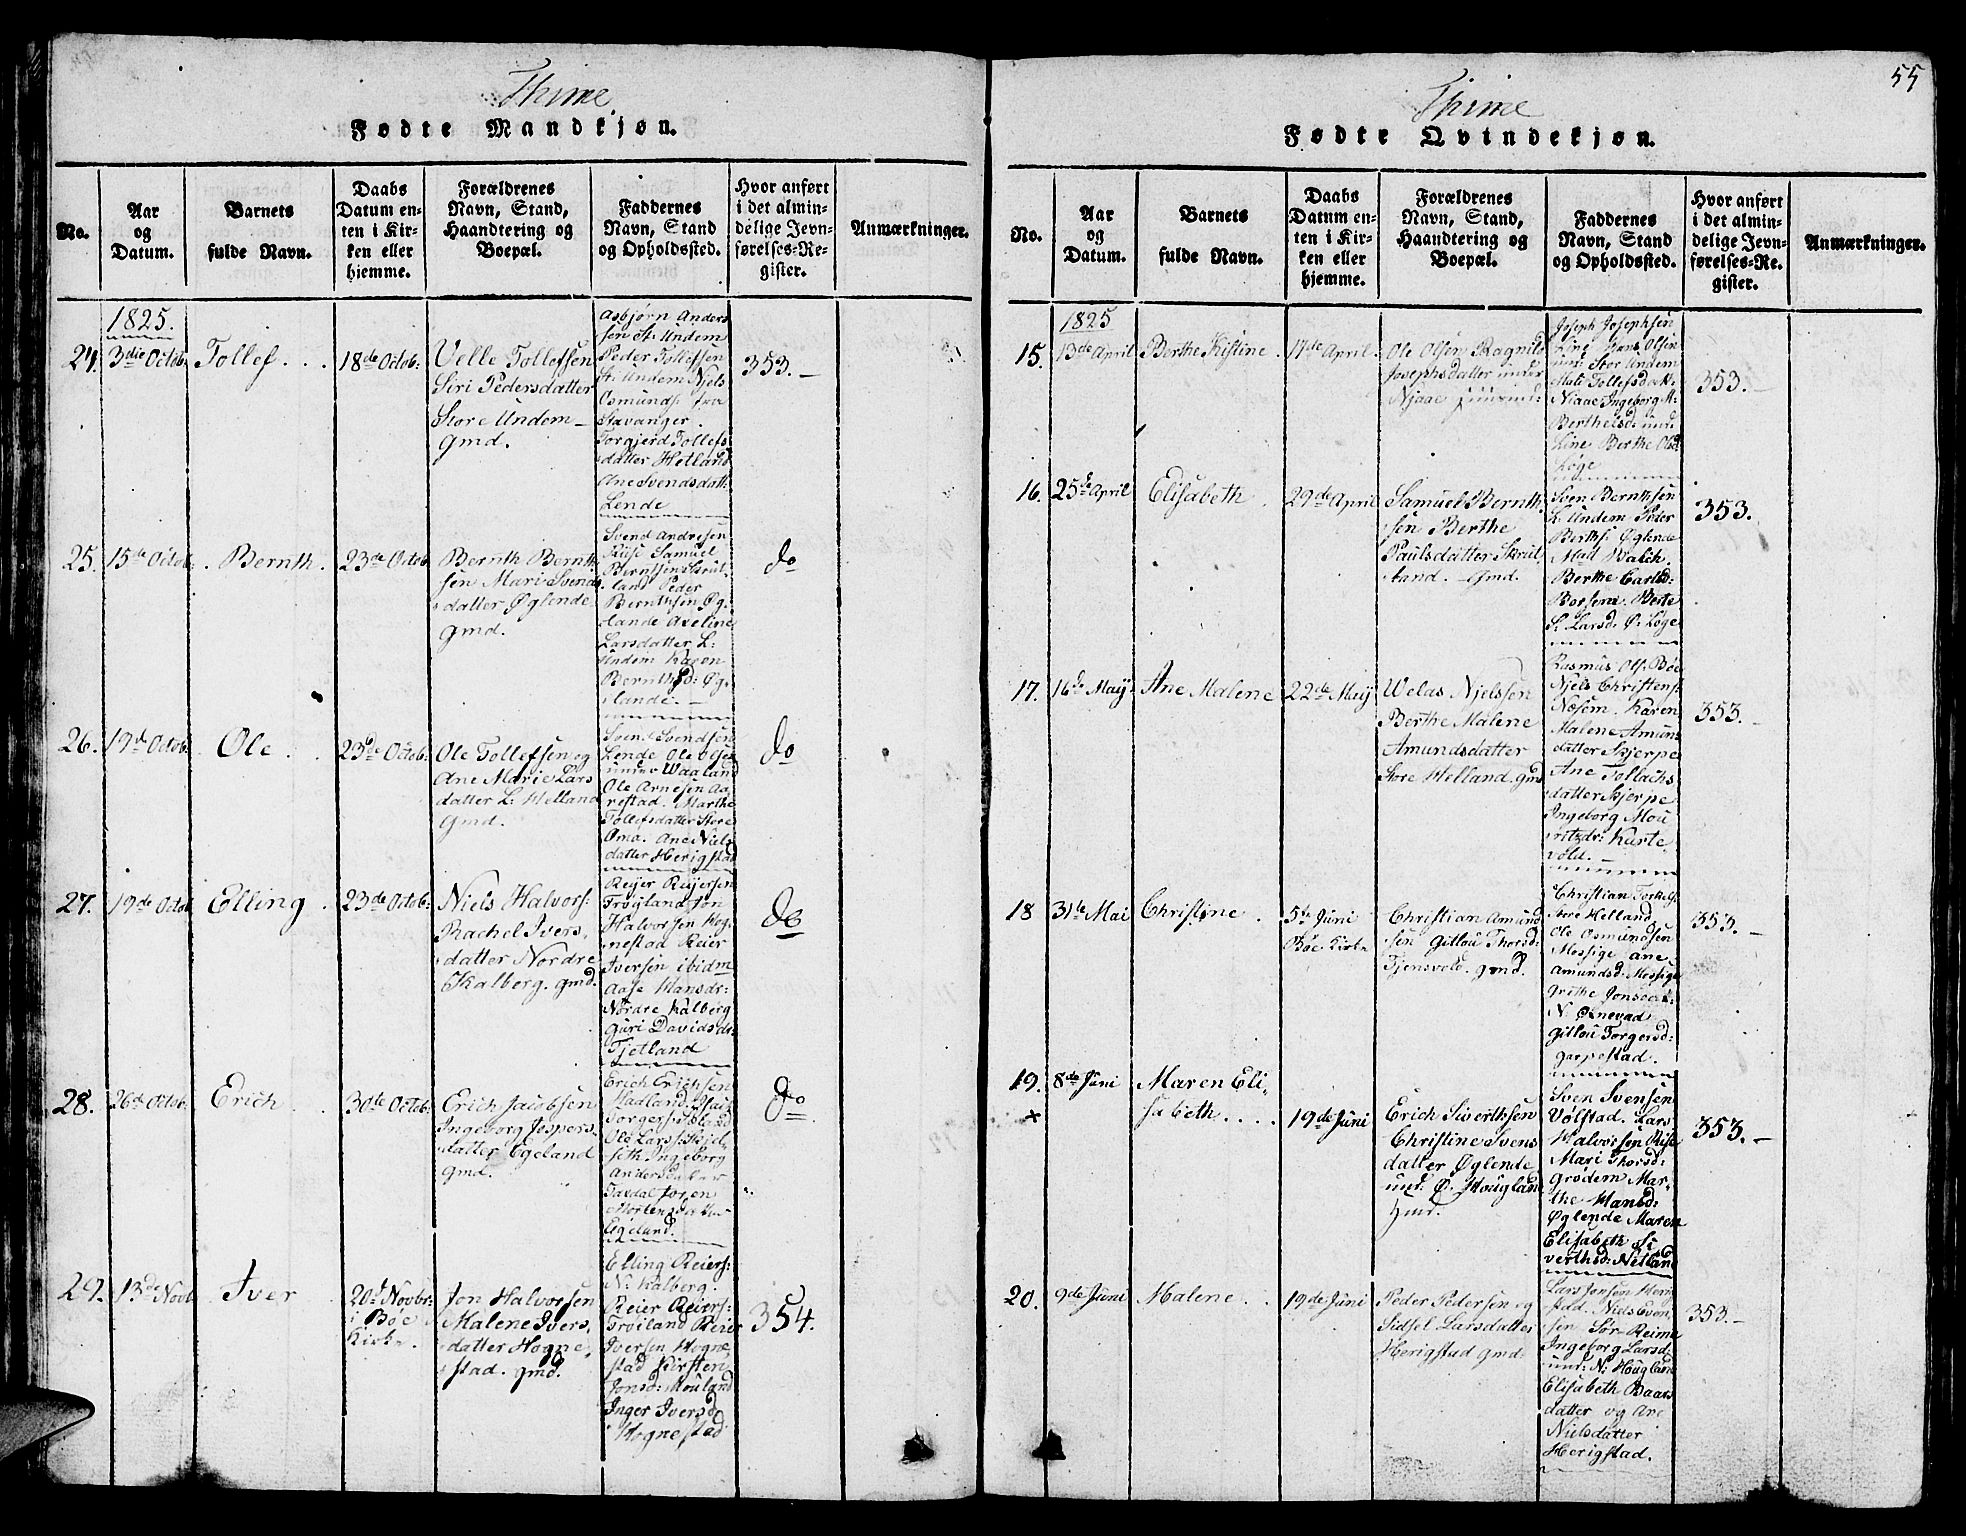 Thime
Fødte Mandkjøn.
No.
Aar
og
Datum.
Barnets
fulde Navn.
Daabs
Datum en-
ten i Kir-
ken eller
hjemme.
Forældrenes
Navn, Stand,
Haandtering og
Boepæl.
Faddernes
Navn, Stand
og Opholdssted.
Hvor anført
i det almin-
delige Jevn-
førelses-Re-
gister.
Anmærkninger.
1825.
24. 3die Octob: Tollef 18de Octob:
Velle Tollefsen
Siri Pedersdatter
Store Undem
gmd.
Asbjørn Anders
sen St: Undem
Peder Tollefsen
St: Undem Njels
Osmunds: fra
Stavanger.
Torgjerd Tollefs
datter Hetland
Ane Svendsdatt:
Lende
353.
25. 15de Octob: Bernth. 23de Octob
Bernth Bernth
sen Mari Svends
datter Øglende
gmd.
Svend Andresen
Riise Samuel
Berntsen Skrut-
land Peder
Bernthsen Øg-
lande Axeline
Larsdatter L:
Undem Karen
Bernthsd: Øg-
lande.
do
26. 19de Octob. Ole 23de Octob:
Ole Tollefsen og
Ane Marie Lars
datter L: Helland
gmd.
Svend Svendsen
Lende Ole Olsen
under Waaland
Ole Arnesen Aa
restad. Marthe
Tollefsdatter Store
Oma. Ane Niels
datter Herigstad
do
27. 19de Octob Elling 23de Octob:
Niels Halvors:
Rachel Ivers
datter Nordre
Kalberg. gmd.
Reyer Reyersen
Trøgland Jon
Halvorsen Hog
nestad Reier
Iversen ibidm
Aase Hansdr:
Nordre Kalberg
Guri Davidsdr:
Tjetland
do
28. 26de Octob: Erich 30de Octob:
Erich Jacobsen
Ingeborg Jespers
datter Egeland
gmd.
Erich Erichsen
Hadland
Ole Lars:
seth Ingeborg
Andersdatter
Mortensdatter
Egeland.
do
29. 13de Novb Iver
20de Novbr:
i Bøe
Kirke.
Jon Halvorsen
Malene Ivers
datter Hogne
stad. gmd.
Elling Reiers:
N: Kalberg.
Reier Reiers:
Trøiland Reier
Iversen Hogne
stad Kirsten
Jonsd: Mouland
Inger Iversd
Hognestad
354.
55
Thime
Fødte Qvindekjøn.
No.
Aar
og
Datum.
Barnets
fulde Navn.
Daabs
Datum en-
ten i Kir-
ken eller
hjemme.
Forældrenes
Navn, Stand,
Haandtering og
Boepæl.
Faddernes
Navn, Stand
og Opholdssted.
Hvor anført
i det almin-
delige Jevn-
førelses-Re-
gister.
Anmærkninger.
1825
15. 13de April Berthe Kistine 17de April.
Ole Olsen Ragnild
Josephsdatter under
Njaae
Joseph Josephsen
Line Hans Olsen
und: Stor Undem
Mali Tollefsdatt:
Niaae Ingeborg M:
Berthelsd: und:
Line Berthe Olsd
Løge
353.
16. 25de April Elisabeth 29de April
Samuel Bernth
sen Berthe
Paulsdatter Skrut
land. gmd.
Sven Bernthsen
L: Undem Peder
Berths: Øglende
Mad Balch.
Berthe Carlsd:
Berte
L: Larsd: Ø: Løge
353.
17. 16de Maij. Ane Malene 22de Maij
Welas Njelssen
Berthe Malene
Amundsdatter
Store Helland. gmd
Rasmus Ols: Bøe
Njels Christens:
Næsem. Karen
Malene Amuns
datter Skjerpe
Ane Tollachs
datter Skjerpe
Ingeborg Mou
ritzdr: Kurte
vold.
353.
18 31te Mai Christine
5te Juni
Bøe Kirke
Christian Amund
sen Gitlou Thorsd:
Tjensvold. gmd.
Christian Torkels:
Store Helland,
Ole Osmundsen
Mossige Ane
Amundsd: Mossige
Grithe Jonsdatt:
N. Ødnevad
Gitlou Torgersd:
Garpestad.
353.
19. 8de Juni
Maren Eli-
sabeth
19de Juni
+
Erich Siverthsen
Christine Svens
datter Øglende
und: Ø: Hougland
Sven Svensen
Volstad. Lars
Halvorsen Riise
Mari Thorsd:
Grødem Mar-
the Hansd:
Øglende Maren
Elisabeth Si
verthsd: Netland
353.
20. 9de Juni Malene 19de Juni
Peder Pedersen og
Sidsel Larsdatter
Herigstad gmd:
Lars Jonsen Herig
stad. Niels Even
sen Sør-Reime
Ingeborg Larsd:
und: N: Hougland
Elisabeth Baars
datter og Ane
Nielsdatter
Herigstad.
353.